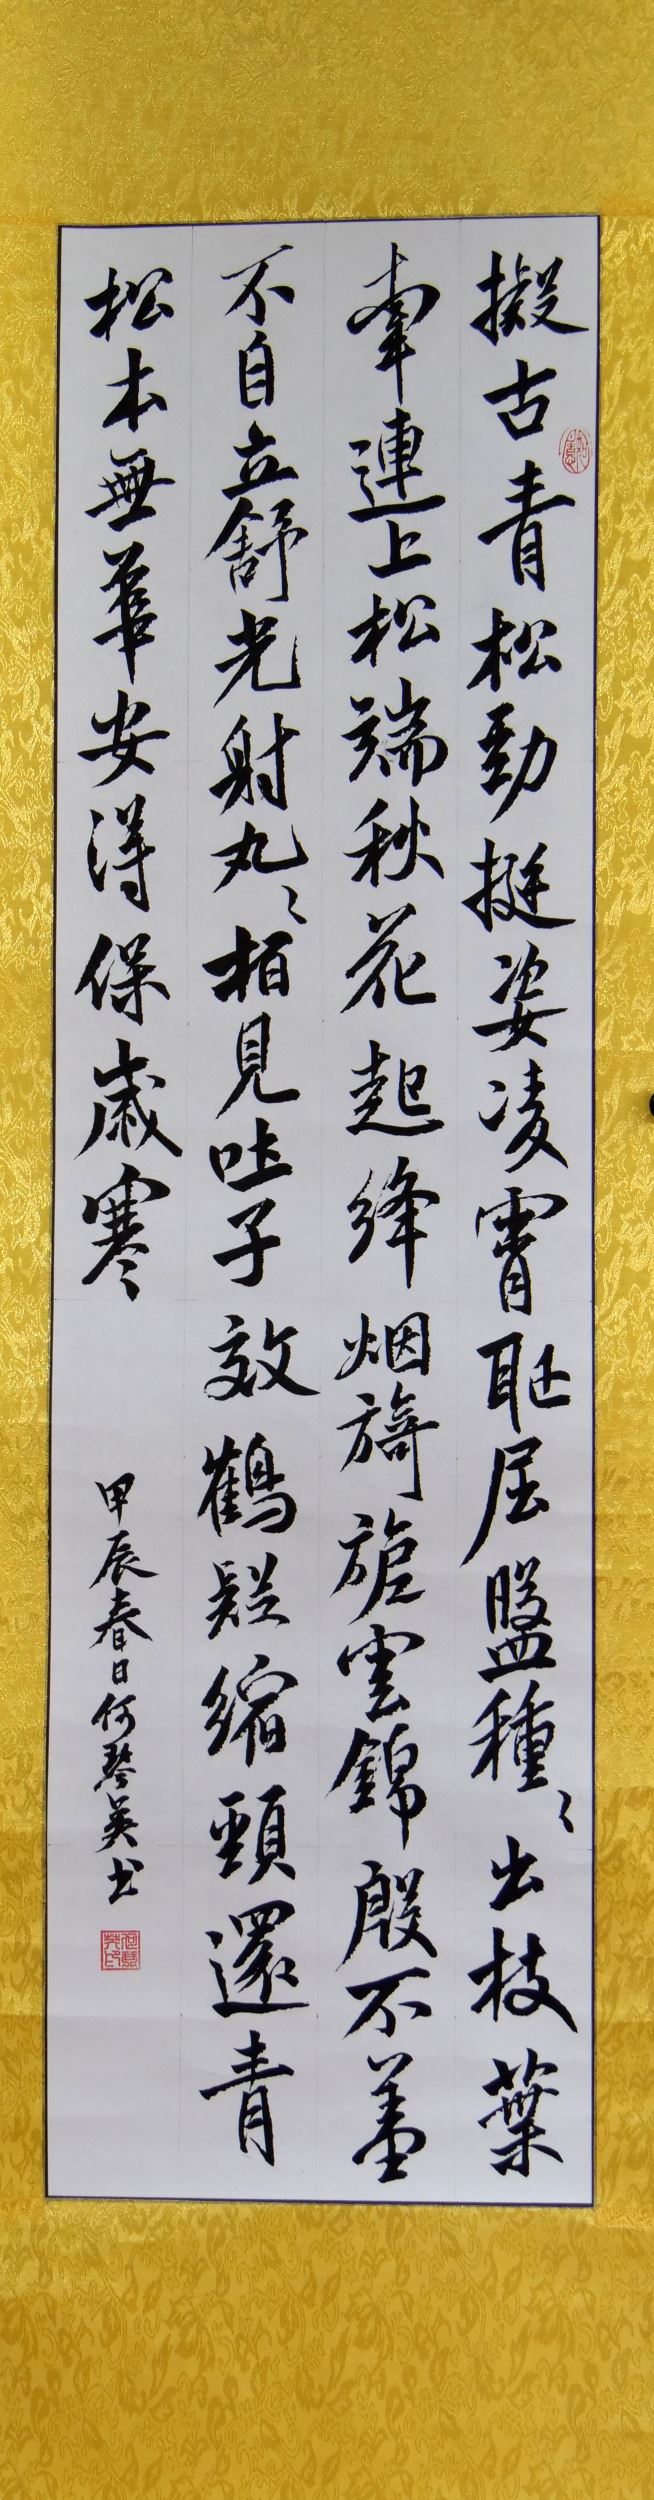 擬古青松勁挺姿凌霄耻屈盤種〻出枝葉
牽連上松端秋花起絳烟旖旎雲錦殷不羞
不自立舒光射丸〻栢見吐子效鶴疑縮頸還青
松本無華安得保歲寒
甲辰春日何琴英书
如意
何琴英印